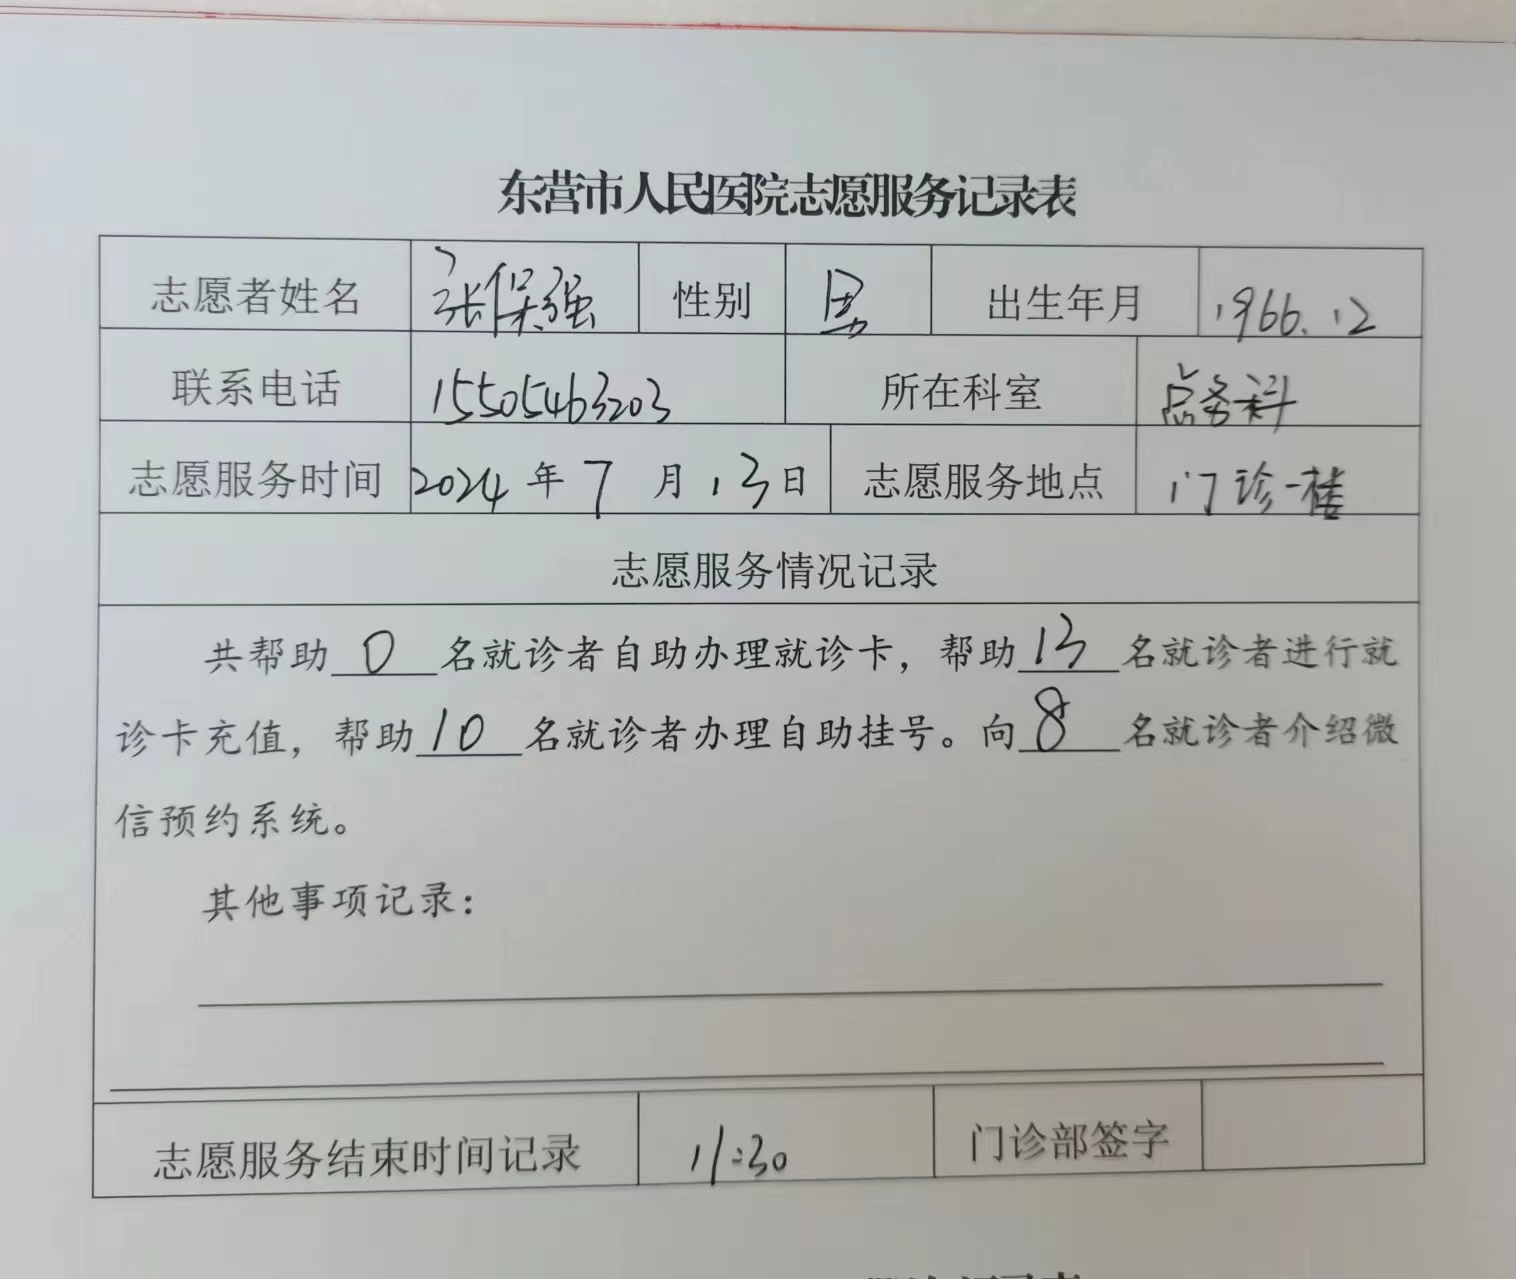 东营市人民医院志愿服务记录表
志愿者姓名 张保强 性别 男 出生年月 1966.12
联系电话 15505463203 所在科室 总务科
志愿服务时间 2024年7月13日 志愿服务地点 门诊一楼
志愿服务情况记录
共帮助0名就诊者自助办理就诊卡，帮助13名就诊者进行就
诊卡充值，帮助10名就诊者办理自助挂号。向8名就诊者介绍微
信预约系统。
其他事项记录：
志愿服务结束时间记录 11:30 门诊部签字